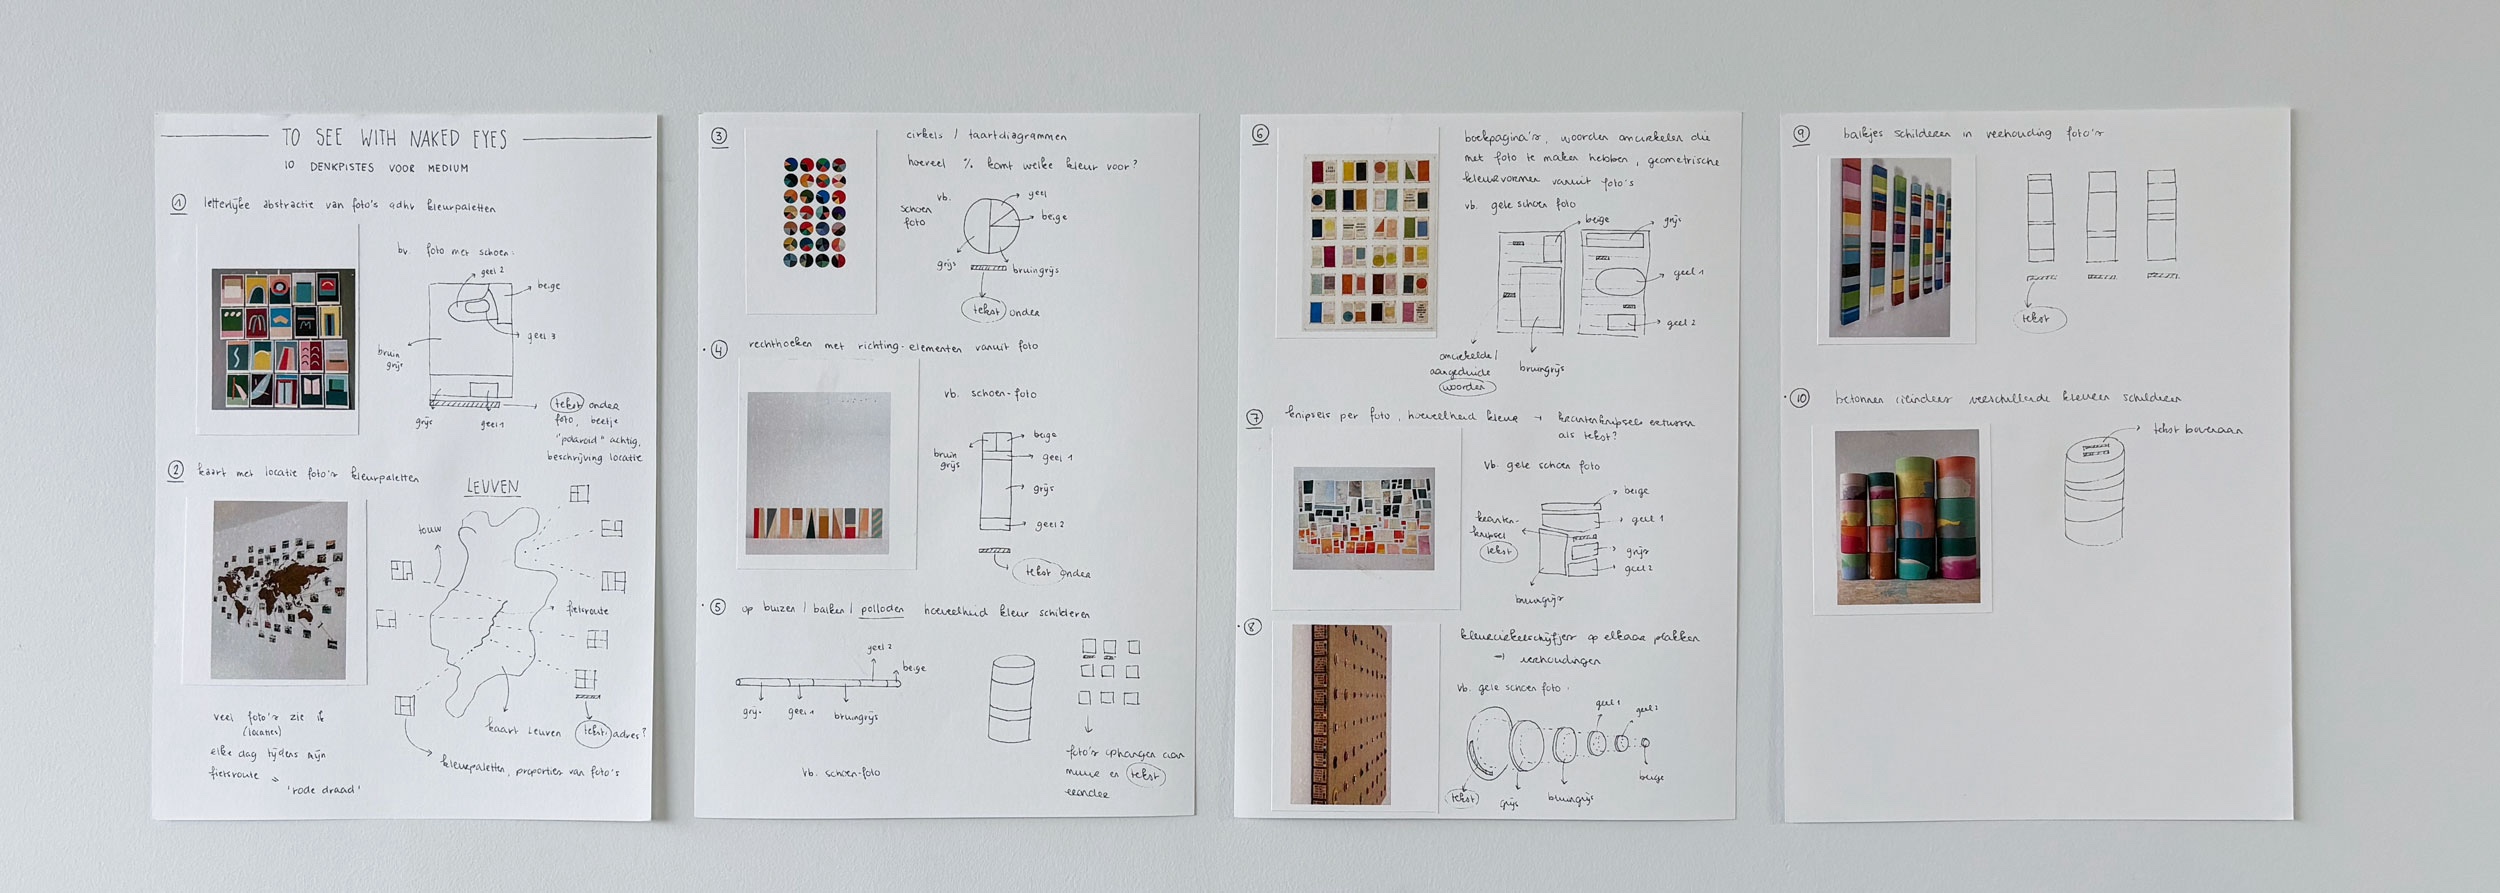 TO SEE WITH NAKED EYES
10 DENKPISTES VOOR MEDIUM
1 letterlijke abstractie van foto's adhv kleurpaletten
bv. foto met schoen:
geel 2
beige
geel 3
bruin
grijs
grijs
geel 1
tekst onder
foto, beetje
"polaroid" achtig,
beschrijving locatie
2 kaart met locatie foto's kleurpaletten
LEUVEN
touw
fietsroute
kaart Leuven
tekst: adres?
kleurpaletten, proporties van foto's
veel foto's zie ik
(locaties)
elke dag tijdens mijn
fietsroute
'rode draad'
3 cirkels / taartdiagrammen
hoeveel % komt welke kleur voor?
vb.
schoen
foto
geel
beige
grijs
bruingrijs
tekst onder
4 rechthoeken met richting-elementen vanuit foto
vb. schoen-foto
beige
bruin
grijs
geel 1
grijs
geel 2
tekst onder
5 op buizen / balken / polloden hoeveelheid kleur schilderen
geel 2
beige
grijs
geel 1
bruingrijs
vb. schoen-foto
foto's ophangen aan
muur en tekst
eronder
6 boekpagina's, woorden omcirkelen die
met foto te maken hebben, geometrische
kleurvormen vanuit foto's
vb. gele schoen foto
beige
grijs
geel 1
geel 2
omcirkelde /
aangeduide
woorden
bruingrijs
7 knipsels per foto, hoeveelheid kleur → krantenknipsels ertussen
als tekst?
vb. gele schoen foto
beige
geel 1
kranten-
knipsel
tekst
grijs
geel 2
bruingrijs
8 kleurcirkelschijfjes op elkaar plakken
→ verhoudingen
vb. gele schoen foto:
geel 1
geel 2
beige
tekst
grijs
bruingrijs
9 balkjes schilderen in verhouding foto's
tekst
10 betonnen cilinders verschillende kleuren schilderen
tekst bovenaan